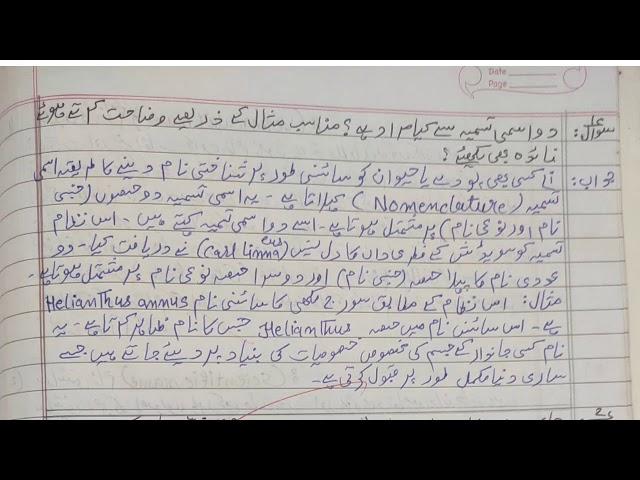 Date
Page
سوال: دو اسمی تسمیہ سے کیا مراد ہے؟ مناسب مثال کے ذریعے وضاحت کرتے ہوئے
فائدہ بھی لکھئے؟
جواب: کسی بھی پودے یا حیوان کو سائنسی طور پر شناختی نام دینے کا طریقہ اسمی
تسمیہ (Nomenclature) کہلاتا ہے۔ یہ اسمی تسمیہ دو حصوں (جنسی
نام اور نوعی نام) پر مشتمل ہوتا ہے۔ اسے دو اسمی تسمیہ کہتے ہیں۔ اس نظام
تسمیہ کو سویڈش کے فطری داں کارل لینس (Carl Linnaeus) نے دریافت کیا۔ دو
عددی نام کا پہلا حصہ (جنسی نام) اور دوسرا حصہ نوعی نام پر مشتمل ہوتا ہے۔
مثال: اس نظام کے مطابق سورج مکھی کا سائنسی نام Helianthus annus
ہے۔ اس سائنسی نام میں حصہ Helianthus جنس کا نام ظاہر کرتا ہے۔ یہ
نام کسی جاندار کے جسم کی مخصوص خصوصیات کی بنیاد پر دیئے جاتے ہیں جسے
ساری دنیا مکمل طور پر قبول کرتی ہے۔